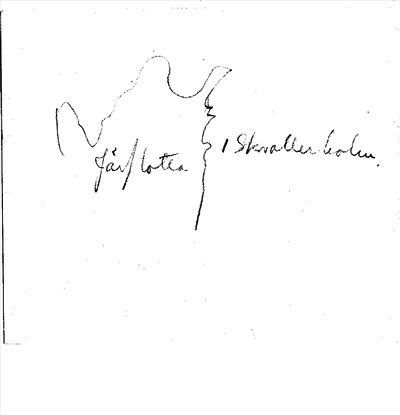 Järflotta 1 Skvallerholm.